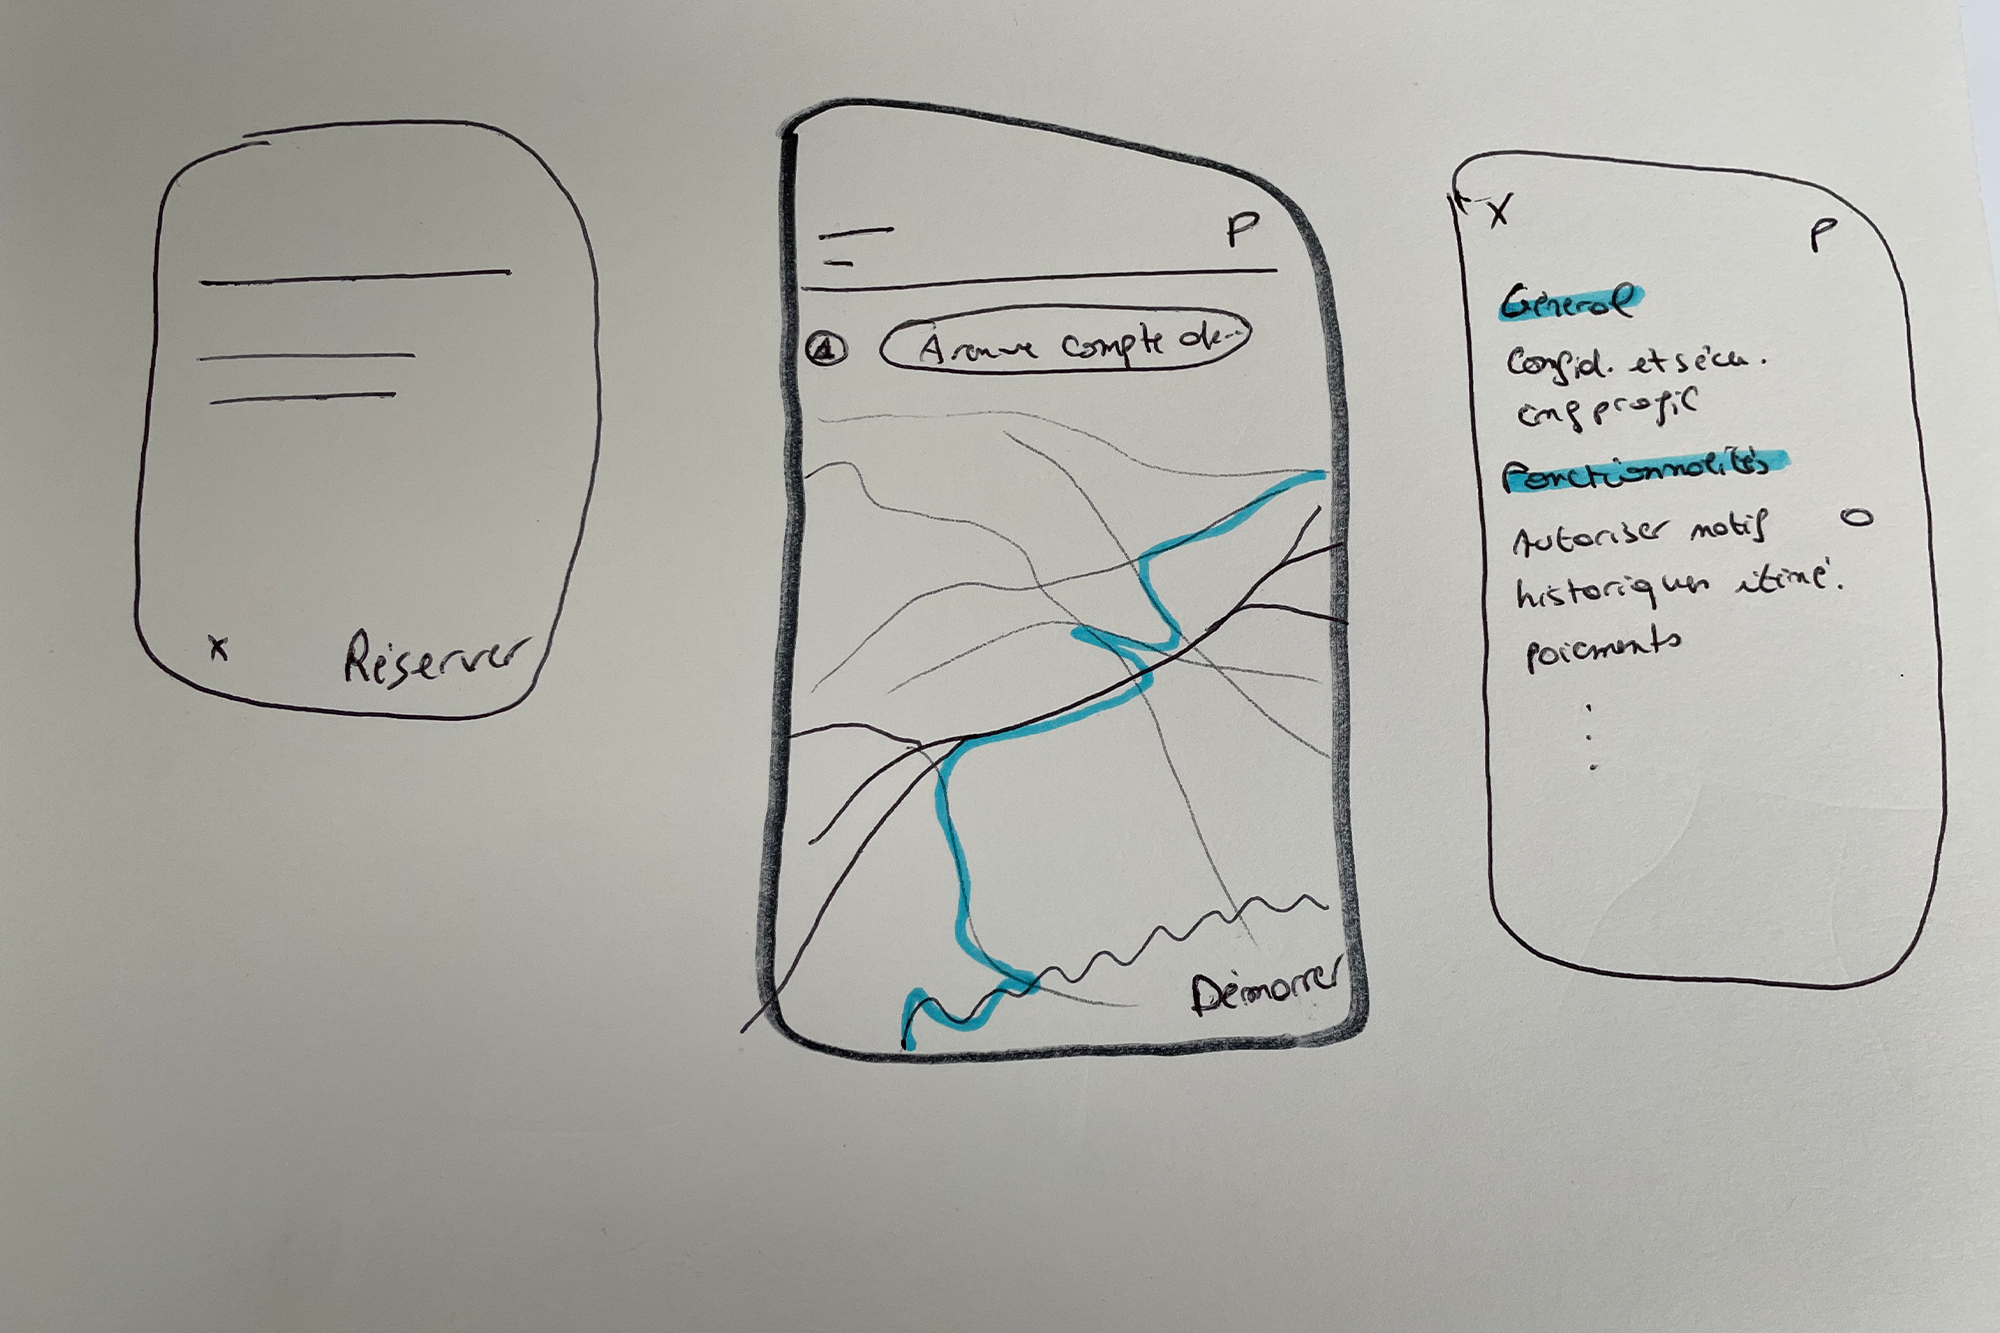 x Réserver
P
A
Avenue compte de...
Démarrer
X
P
Général
Confid. et sécu.
profil
Fonctionnalités
Autoriser notif
historiques itiné.
paiements